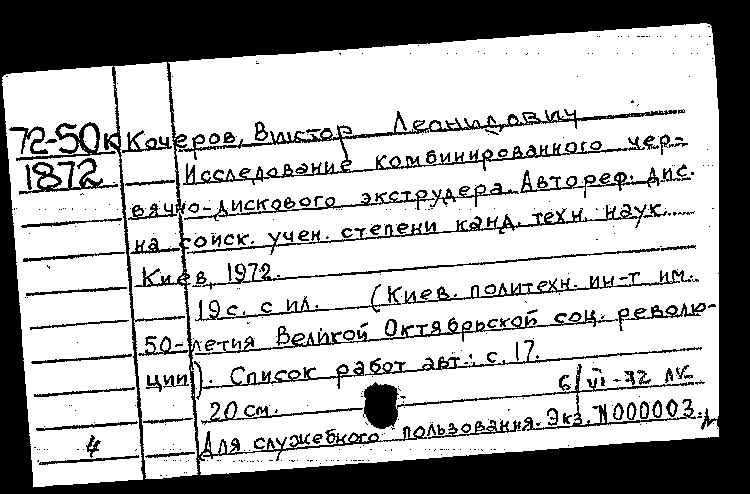 72-50к Кочеров, Виктор Леонидович
1872 Исследование комбинированного чер-
вячно-дискового экструдера. Автореф. дис.
на соиск. учен. степени канд. техн. наук.
Киев, 1972.
19 с. с ил. (Киев. политехн. ин-т им.
50-летия Великой Октябрьской соц. револю-
ции). Список работ авт.: с. 17.
20 см. 6/VI-72
4 Для служебного пользования. Экз. N000003.